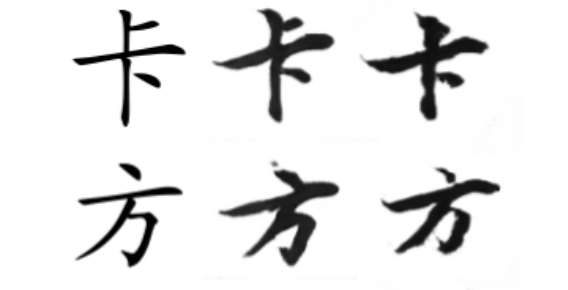 卡卡卡
方方方